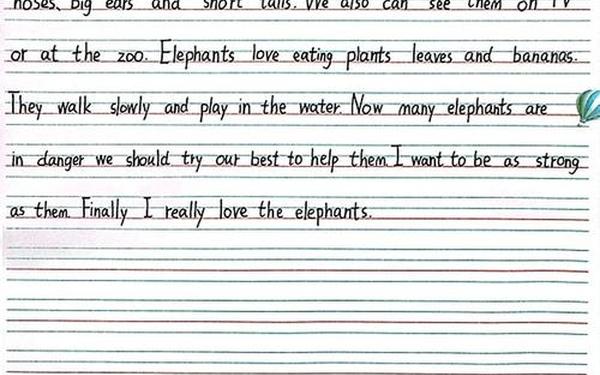 noses, big ears and short tails. We also can see them on TV
or at the zoo. Elephants love eating plants leaves and bananas.
They walk slowly and play in the water. Now many elephants are
in danger we should try our best to help them. I want to be as strong
as them. Finally I really love the elephants.